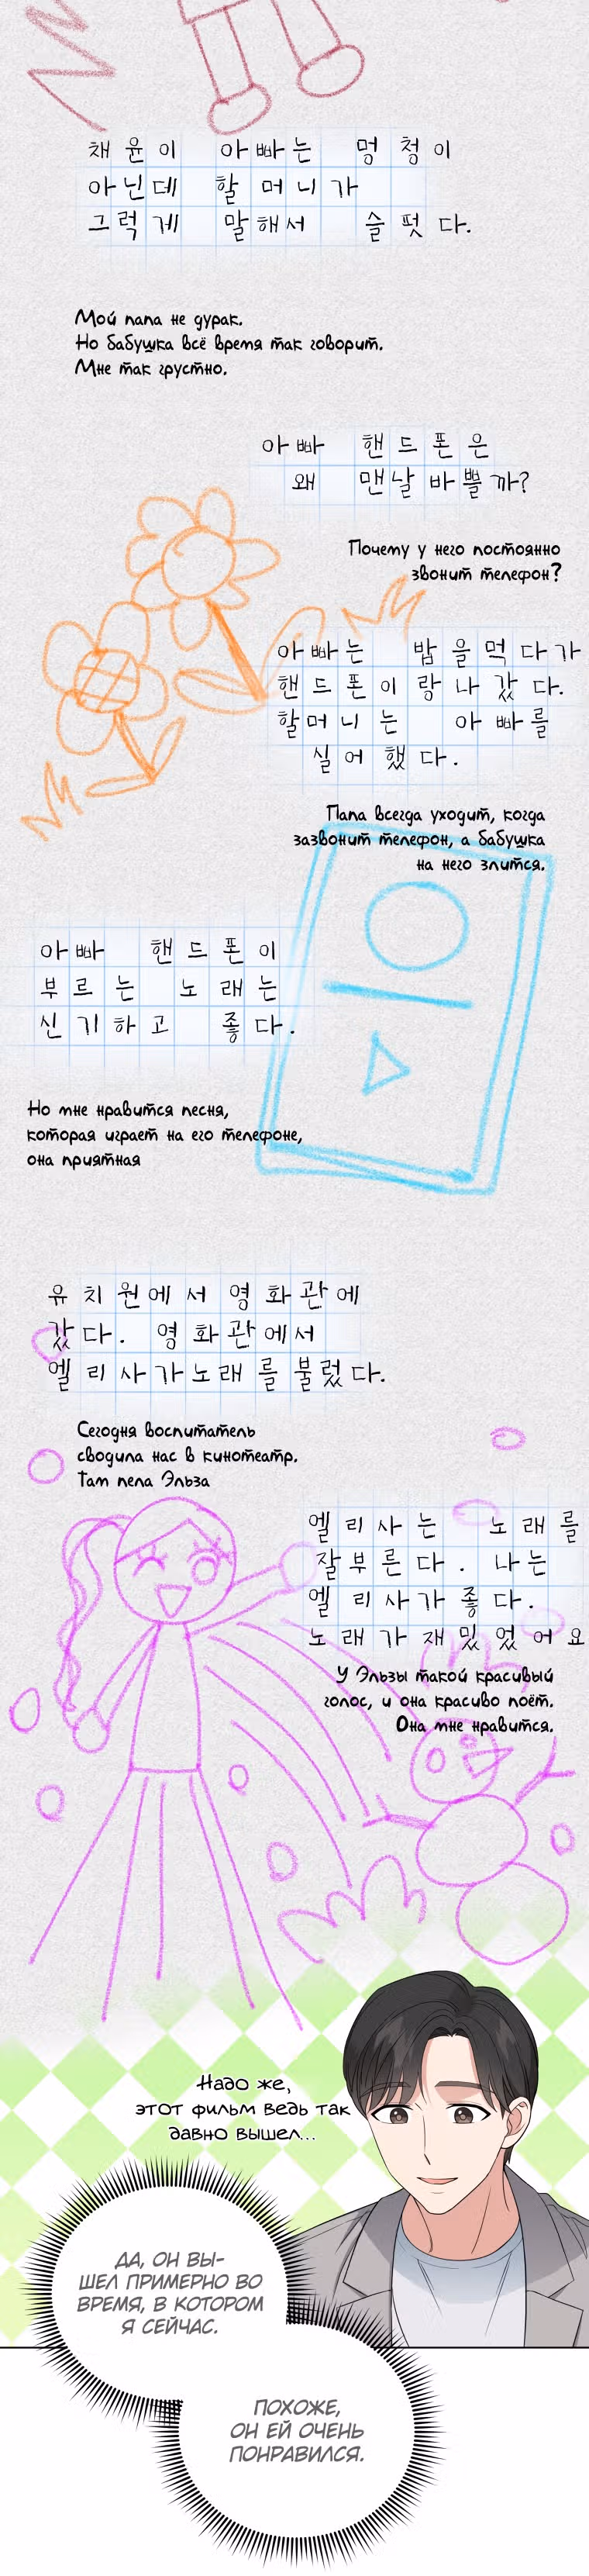 채윤이 아빠는 멍청이
아닌데 할머니가
그럭게 말해서 슬펏다.
Мой папа не дурак.
Но бабушка всё время так говорит.
Мне так грустно.
아빠 핸드폰은
왜 맨날 바쁠까?
Почему у него постоянно
звонит телефон?
아빠는 밥을먹다가
핸드폰이랑나갔다.
할머니는 아빠를
실어했다.
Папа всегда уходит, когда
зазвонит телефон, а бабушка
на него злится.
아빠 핸드폰이
부르는 노래는
신기하고 좋다.
Но мне нравится песня,
которая играет на его телефоне,
она приятная
유치원에서 영화관에
갔다. 영화관에서
엘리사가노래를불렀다.
Сегодня воспитатель
сводила нас в кинотеатр.
Там пела Эльза
엘리사는 노래를
잘부른다. 나는
엘리사가좋다.
노래가재밌었어요
У Эльзы такой красивый
голос, и она красиво поёт.
Она мне нравится.
Надо же,
этот фильм ведь так
давно вышел...
ДА, ОН ВЫ-
ШЕЛ ПРИМЕРНО ВО
ВРЕМЯ, В КОТОРОМ
Я СЕЙЧАС.
ПОХОЖЕ,
ОН ЕЙ ОЧЕНЬ
ПОНРАВИЛСЯ.